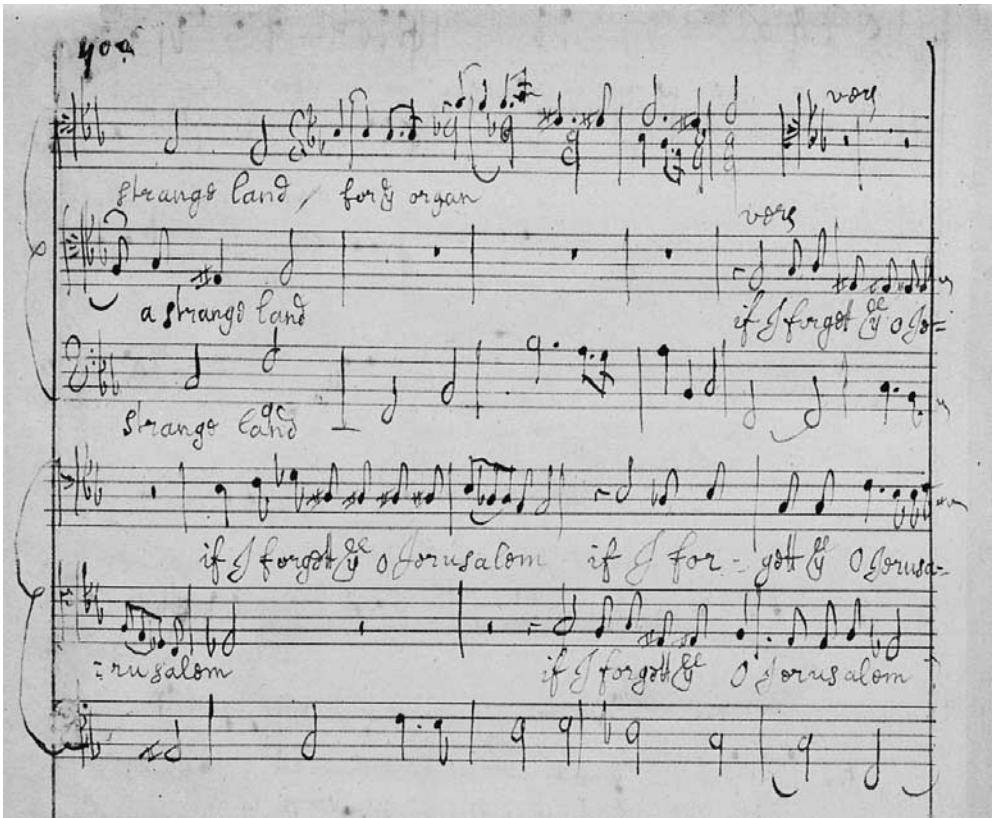 vers
strange land / for yͤ organ
vers
a strange land
if I forget yͤ o Je=
strange land
if I forgett yͤ o Jerusalem if I for - gett yͤ O Jerusa=
:rusalem
if I forgett yͤ O Jerusalem